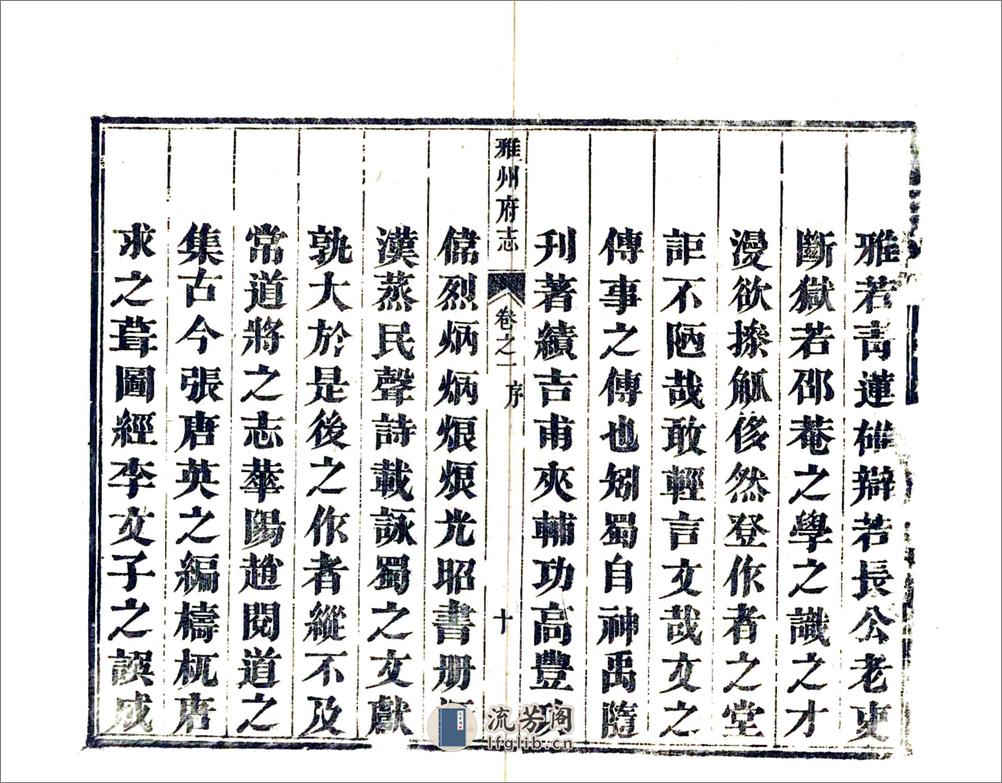 雅若青蓮雄辯若長公老吏
斷獄若邵菴之學之識之才
漫欲操觚侈然登作者之堂
詎不陋哉敢輕言文哉文之
傳事之傳也矧蜀自神禹隨
刊著績吉甫夾輔功高豐功
雅州府志
卷之一
序
十
偉烈炳炳烺烺光昭書册
漢蒸民聲詩載詠蜀之文獻
孰大於是後之作者縱不及
常道將之志華陽趙閱道之
集古今張唐英之編檮杌唐
求之葺圖經李文子之誤成
流芳阁
lfglib.cn